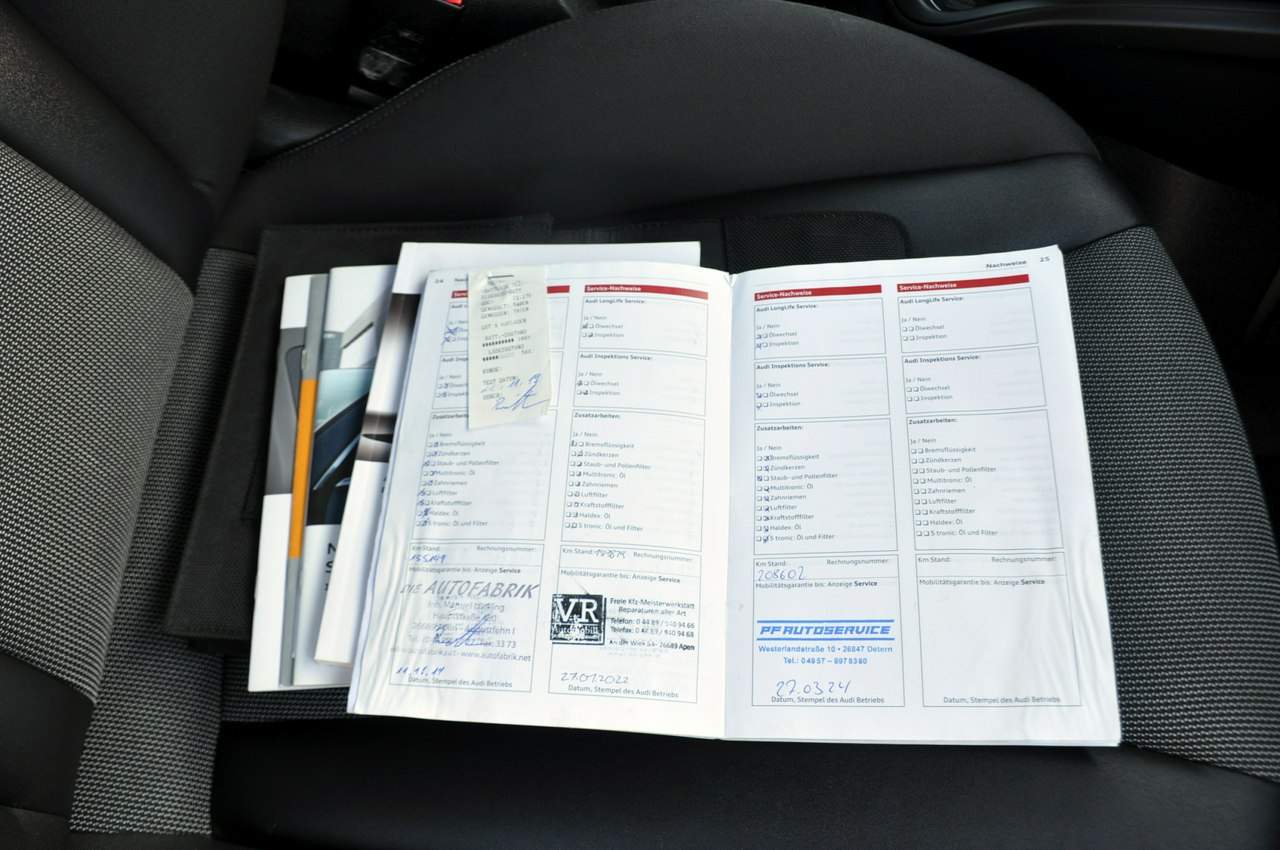 24
Service-Nachweise
Ja / Nein
Ölwechsel
Zusatzarbeiten:
Ja / Nein
Bremsflüssigkeit
Zündkerzen
Staub- und Pollenfilter
Multitronic: Öl
Zahnriemen
Luftfilter
Kraftstofffilter
Haldex: Öl
S tronic: Öl und Filter
Km Stand:
Rechnungsnummer:
135149
Mobilitätsgarantie bis: Anzeige Service
DIE AUTOFABRIK
www.autofabrik.net
Datum, Stempel des Audi Betriebs
Service-Nachweise
Audi LongLife Service:
Ja / Nein
Ölwechsel
Inspektion
Audi Inspektions Service:
Ja / Nein
Ölwechsel
Inspektion
Zusatzarbeiten:
Ja / Nein
Bremsflüssigkeit
Zündkerzen
Staub- und Pollenfilter
Multitronic: Öl
Zahnriemen
Luftfilter
Kraftstofffilter
Haldex: Öl
S tronic: Öl und Filter
Km Stand:
Rechnungsnummer:
Mobilitätsgarantie bis: Anzeige Service
V.R
Freie Kfz-Meisterwerkstatt
Reparaturen aller Art
Telefon: 0 44 89 / 940 94 66
Telefax: 0 44 89 / 940 94 68
26689 Apen
27.01.2022
Datum, Stempel des Audi Betriebs
Nachweise 25
Service-Nachweise
Audi LongLife Service:
Ja / Nein
Ölwechsel
Inspektion
Audi Inspektions Service:
Ja / Nein
Ölwechsel
Inspektion
Zusatzarbeiten:
Ja / Nein
Bremsflüssigkeit
Zündkerzen
Staub- und Pollenfilter
Multitronic: Öl
Zahnriemen
Luftfilter
Kraftstofffilter
Haldex: Öl
S tronic: Öl und Filter
Km Stand:
Rechnungsnummer:
208602
Mobilitätsgarantie bis: Anzeige Service
PF AUTOSERVICE
Westerlandstraße 10 • 26847 Detern
Tel.: 0 49 57 – 897 83 80
27.03.24
Datum, Stempel des Audi Betriebs
Service-Nachweise
Audi LongLife Service:
Ja / Nein
Ölwechsel
Inspektion
Audi Inspektions Service:
Ja / Nein
Ölwechsel
Inspektion
Zusatzarbeiten:
Ja / Nein
Bremsflüssigkeit
Zündkerzen
Staub- und Pollenfilter
Multitronic: Öl
Zahnriemen
Luftfilter
Kraftstofffilter
Haldex: Öl
S tronic: Öl und Filter
Km Stand:
Rechnungsnummer:
Mobilitätsgarantie bis: Anzeige Service
Datum, Stempel des Audi Betriebs